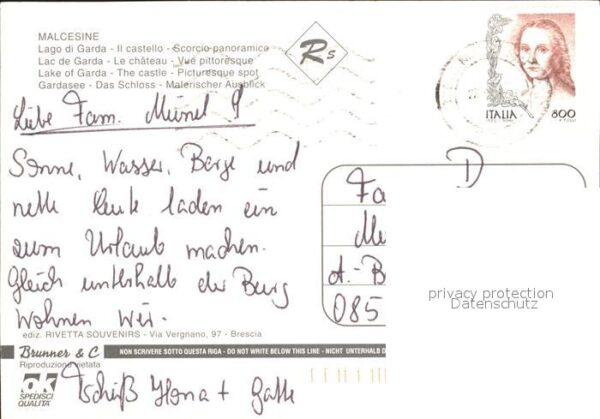 MALCESINE
Lago di Garda - Il castello - Scorcio panoramico
Lac de Garda - Le château - Vue pittoresque
Lake of Garda - The castle - Picturesque spot
Gardasee - Das Schloss - Malerischer Ausblick
Rs
ITALIA 800
Liebe Fam. Meinel !
Sonne, Wasser, Berge und
nette Leute laden ein
zum Urlaub machen.
Gleich unterhalb der Burg
wohnen wir.
Tschüß Ilona + Gatte
D
Fa
A.-B
085
privacy protection
Datenschutz
ediz. RIVETTA SOUVENIRS - Via Vergnano, 97 - Brescia
Brunner & C
NON SCRIVERE SOTTO QUESTA RIGA - DO NOT WRITE BELOW THIS LINE - NICHT UNTERHALB D
Riproduzione vietata
ok
SPEDISCI
QUALITÀ